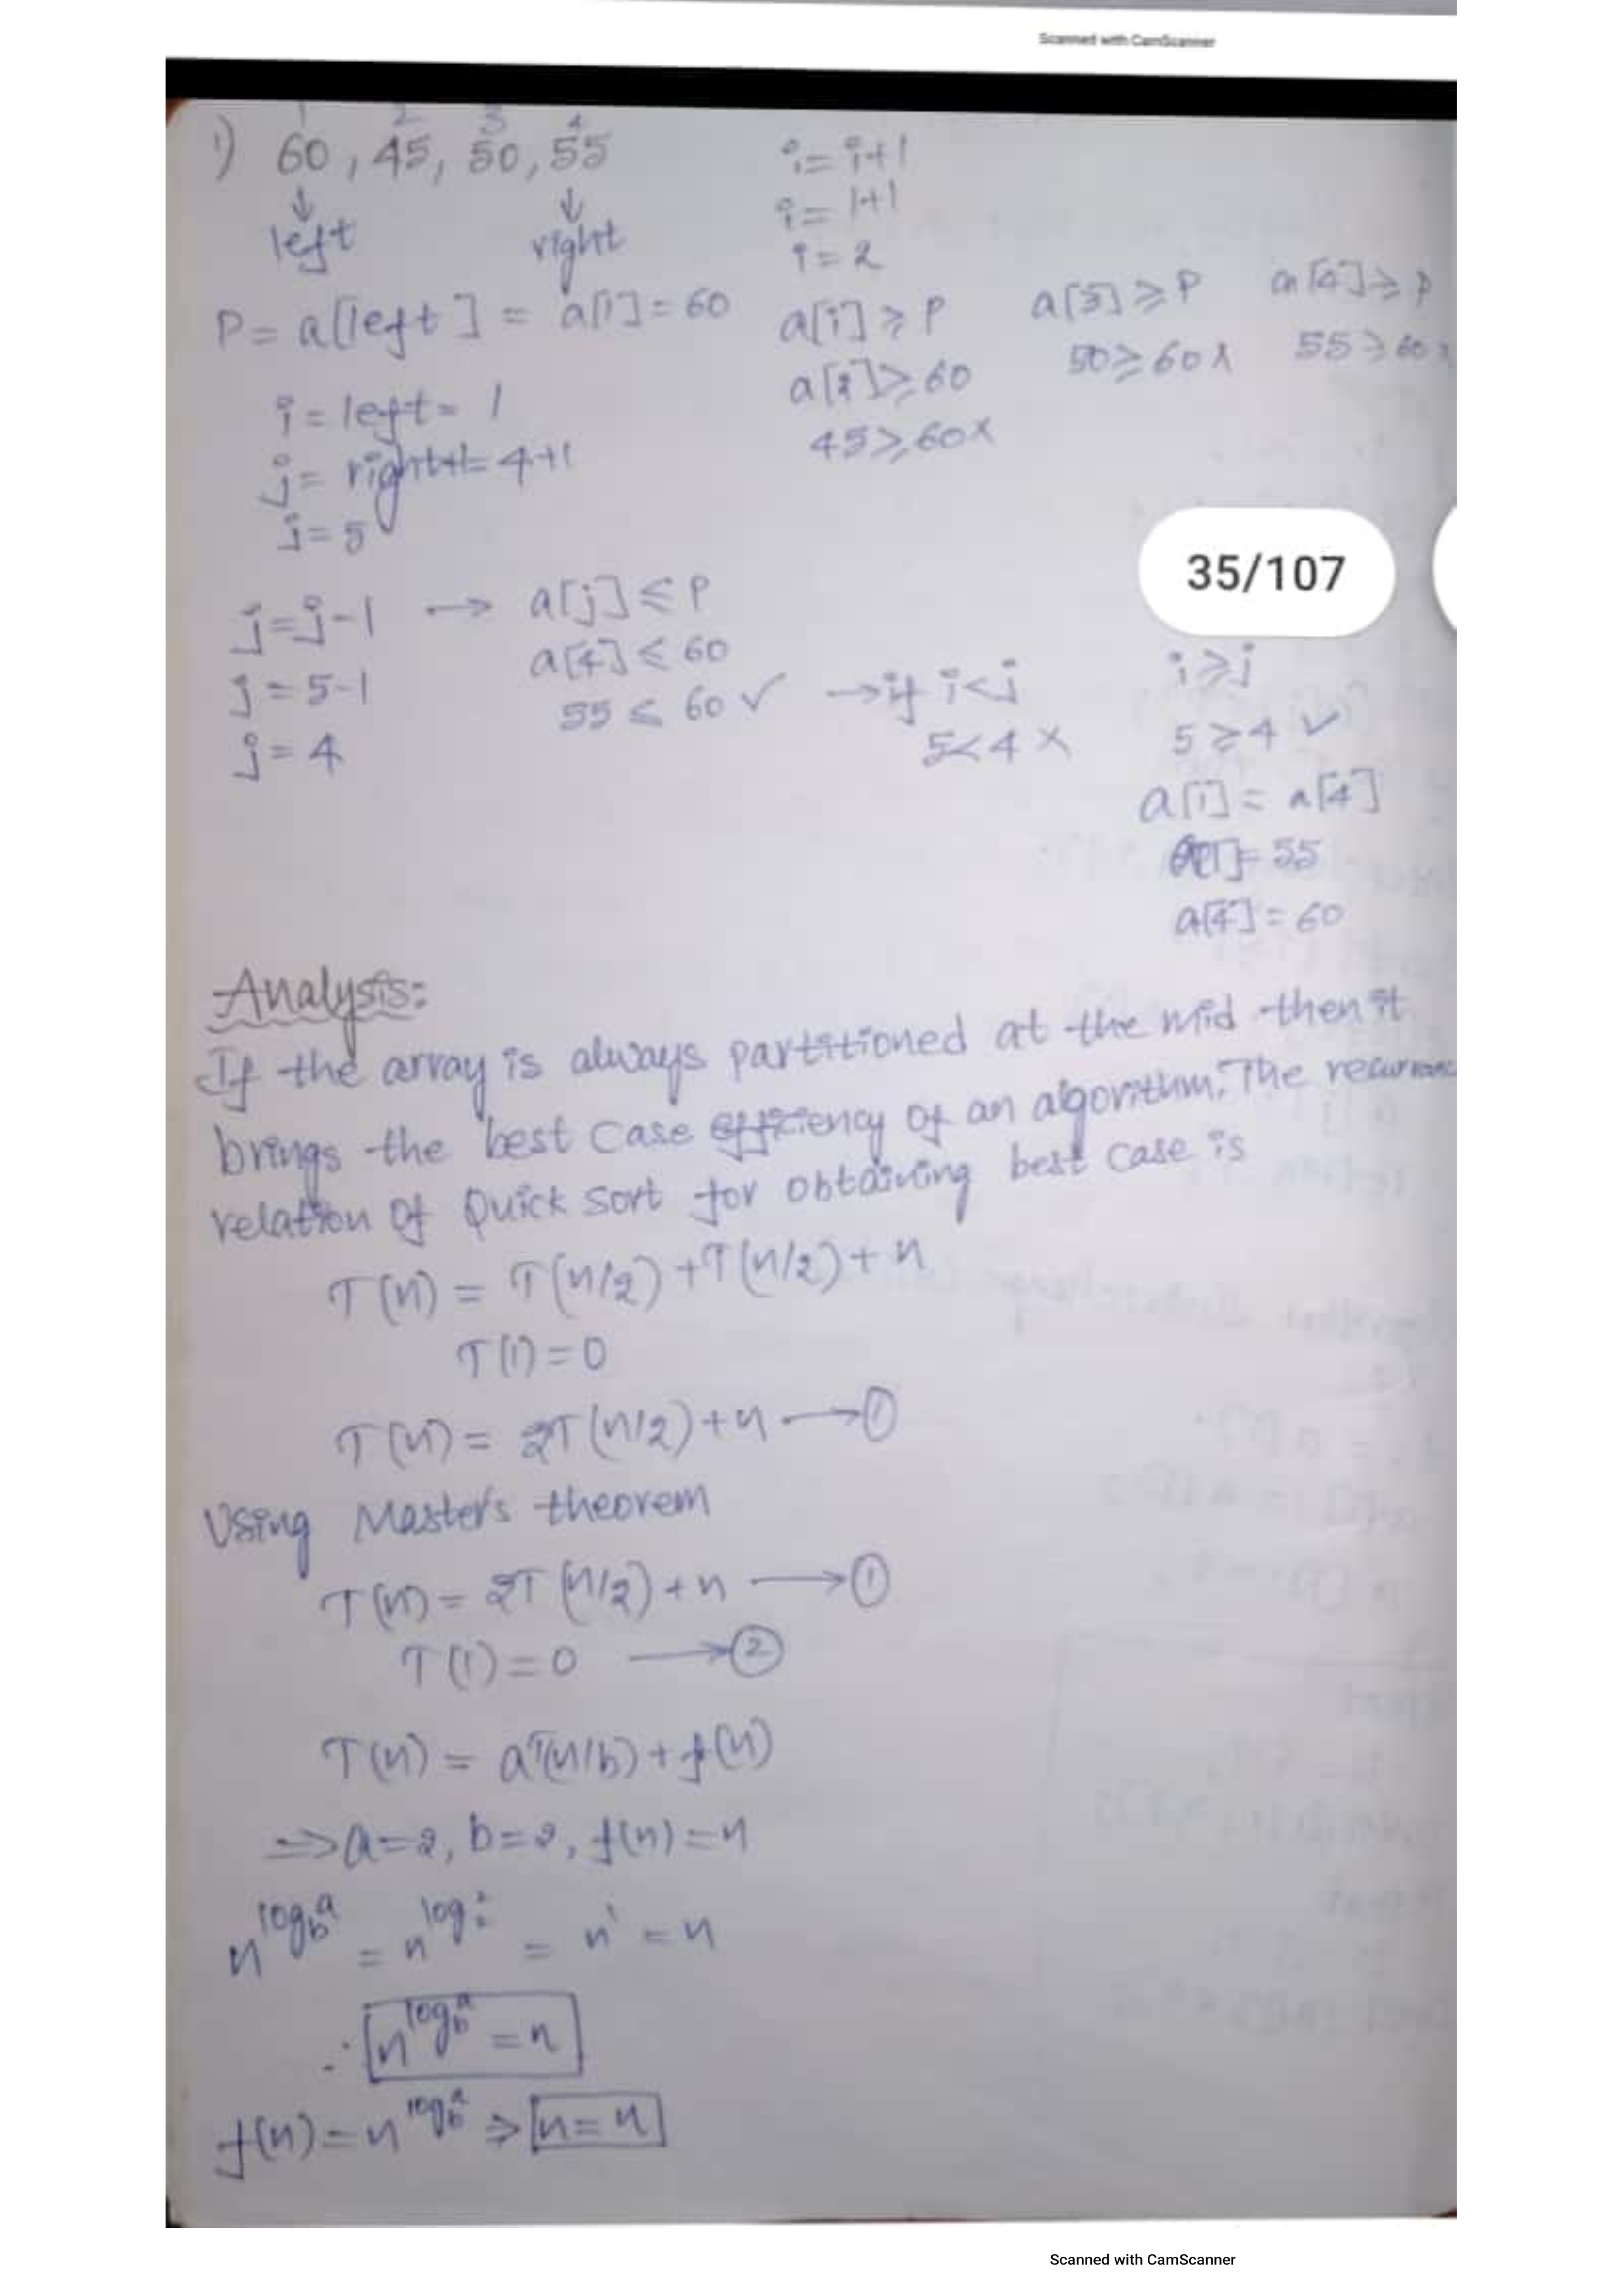 Scanned with CamScanner
1 2 3 4
1) 60, 45, 50, 55
↓ ↓
left right
P = a[left] = a[1] = 60
i = left = 1
j = right+1 = 4+1
j = 5
i = i+1
i = 1+1
i = 2
a[i] ≥ P
a[2] ≥ 60
45 ≥ 60 x
a[3] ≥ P
50 ≥ 60 x
a[4] ≥ P
55 ≥ 60 x
35/107
j = j-1 → a[j] ≤ P
j = 5-1
j = 4
a[4] ≤ 60
55 ≤ 60 ✓ → if i < j
5 < 4 x
i ≥ j
5 ≥ 4 ✓
a[i] = a[4]
a[1] = 55
a[4] = 60
Analysis:
If the array is always partitioned at the mid then it
brings the best case efficiency of an algorithm. The recurrenc
relation of Quick sort for obtaining best case is
T(n) = T(n/2) + T(n/2) + n
T(1) = 0
T(n) = 2T(n/2) + n → ①
Using Master's theorem
T(n) = 2T(n/2) + n → ①
T(1) = 0 → ②
T(n) = aT(n/b) + f(n)
⇒ a = 2, b = 2, f(n) = n
n^log_b^a = n^log_2^2 = n^1 = n
∴ n^log_b^a = n
f(n) = n^log_b^a ⇒ n = n
Scanned with CamScanner